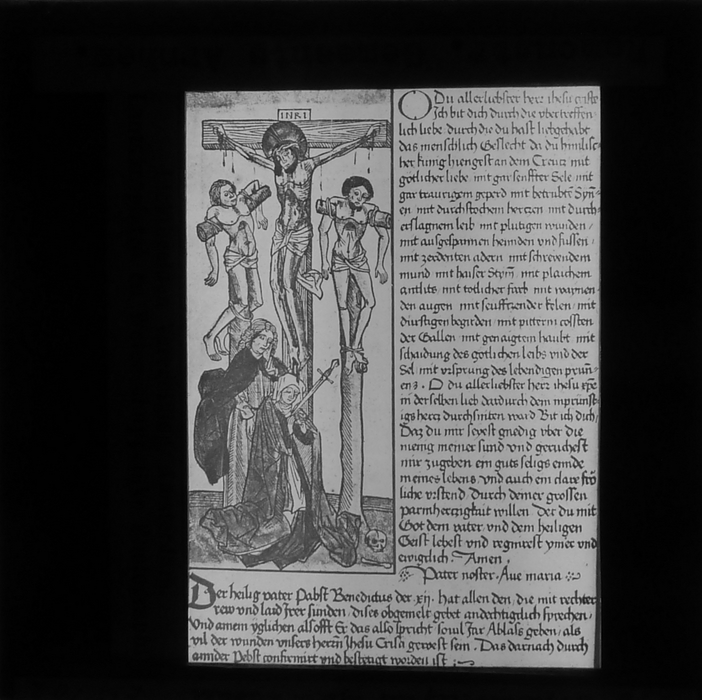 INRI
O Du allerliebster herr ihesu criste
Ich bit dich durch die vbertreffen
lich liebe durch die du hast liebgehabt
das menschlich Geslecht da du himlisc
her kunig hiengest an dem Creutz mit
götlicher liebe mit gar senffter Sele mit
gar traurigem geperd mit betrubtē Syn̄
en mit durchstochem hertzen mit durch
erslagnem leib mit plutigen wunden
mit ausgespannen hennden vnd fussen
mit zerdenten adern mit schreyendem
mund mit haiser Stym̄ mit plaichem
antlits mit totlicher farb mit wainen
den augen mit seufftzender kelen mit
dürstigen begirden mit pitterm cossten
der Gallen mit genaigtem haubt mit
schaidung des gotlichen leibs vnd der
Sel mit vrsprung des lebendigen prunn
en O du allerliebster herr ihesu xp̄e
in derselben lieb dardurch dein
igs hertz durchsniten ward Bit ich dich
Daz du mir seyest gnedig vber die
menig meiner sund vnd geruchest
mir zugeben ein guts seligs ennde
meines lebens vnd auch ein clare frö
liche vrstend Durch deiner grossen
parmhertzigkait willen Der du mit
Got dem vater vnd dem heiligen
Geist lebest vnd regnirest ymer vnd
ewigclich. Amen.
Pater noster. Aue maria
Der heilig vater Pabst Benedictus der xij. hat allen den, die mit rechter
rew vnd laid Jrer sunden, dises obgemelt gebet andechtigclich sprechen,
Vnd ainem yglichen alsofft Er das also spricht souil Jar Ablass geben, als
vil der wunden vnsers herrn Jhesu Cristi gewest sein. Das darnach durch
annder Pebst confirmirt vnd bestetigt worden ist